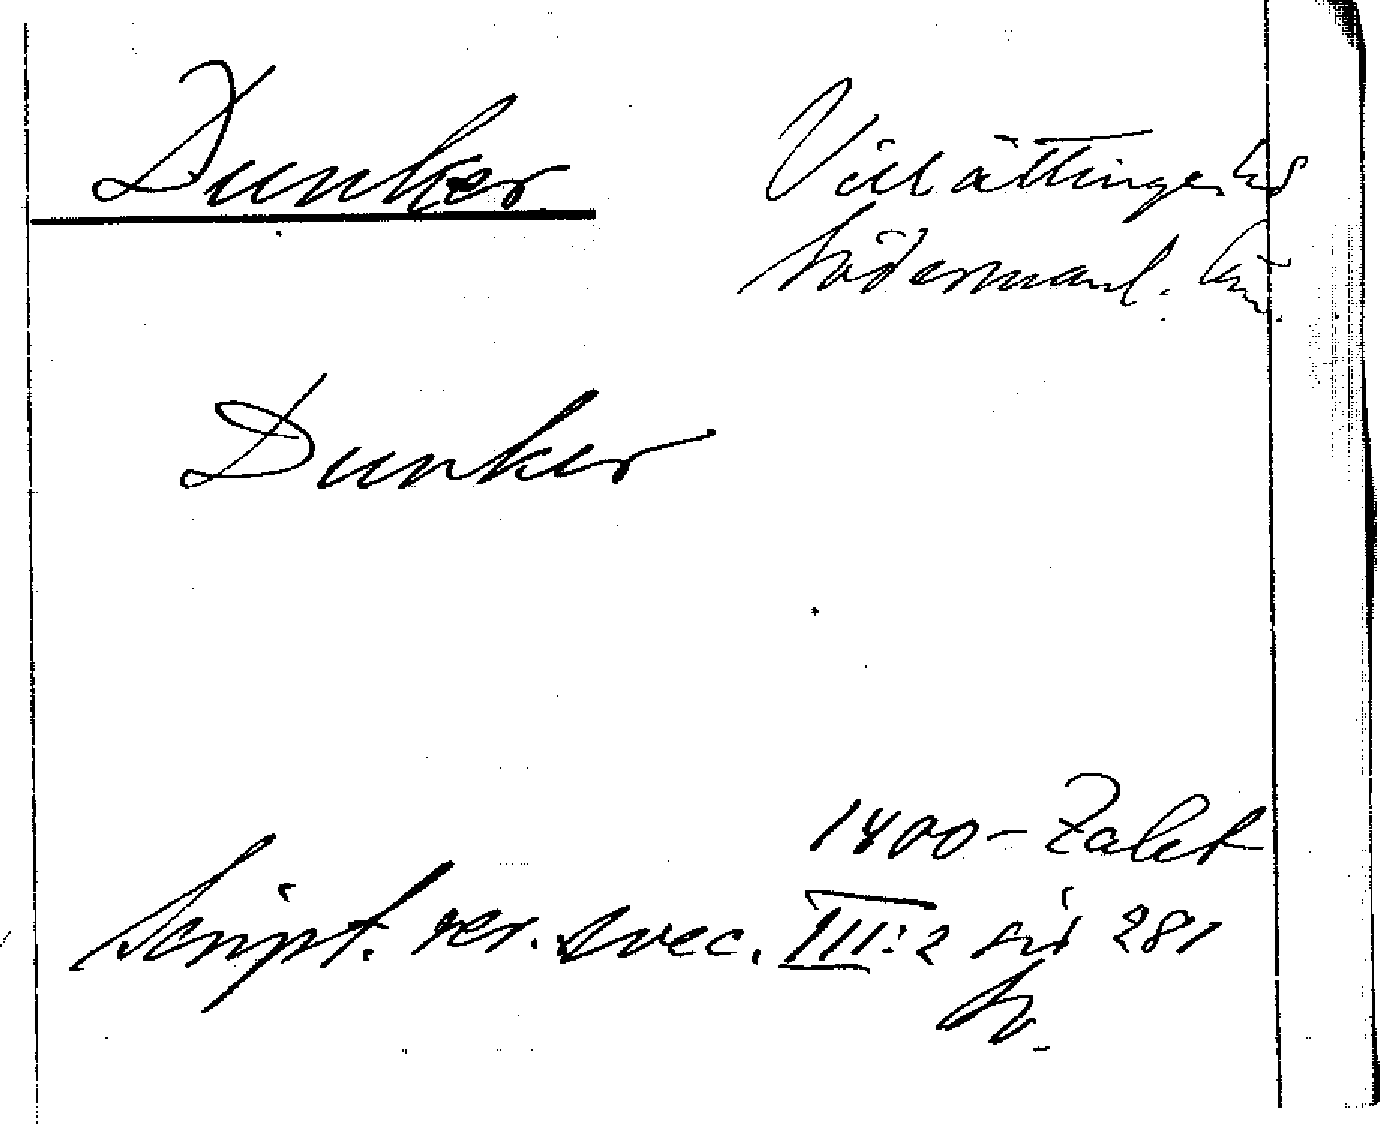 Dunker Villåttinge hd
Södermanl. län.
Dunker
1400-talet
Script. rer. svec. III:2 sid 281